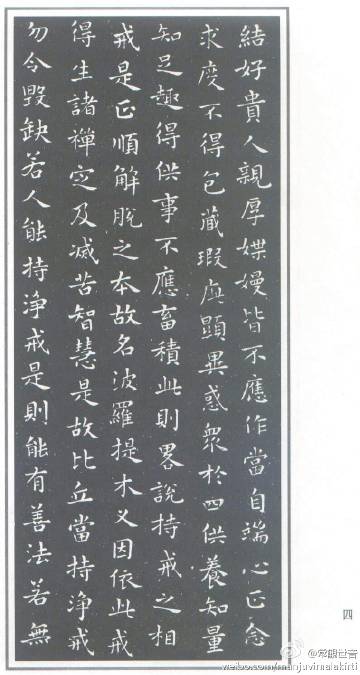 結好貴人親厚媟嫚皆不應作當自端心正念
求度不得包藏瑕疵顯異惑衆於四供養知量
知足趣得供事不應畜積此則略說持戒之相
戒是正順解脫之本故名波羅提木叉因依此戒
得生諸禪定及滅苦智慧是故比丘當持淨戒
勿令毀缺若人能持淨戒是則能有善法若無
四
@常觀世音
weibo.com/manjuvimalakirti